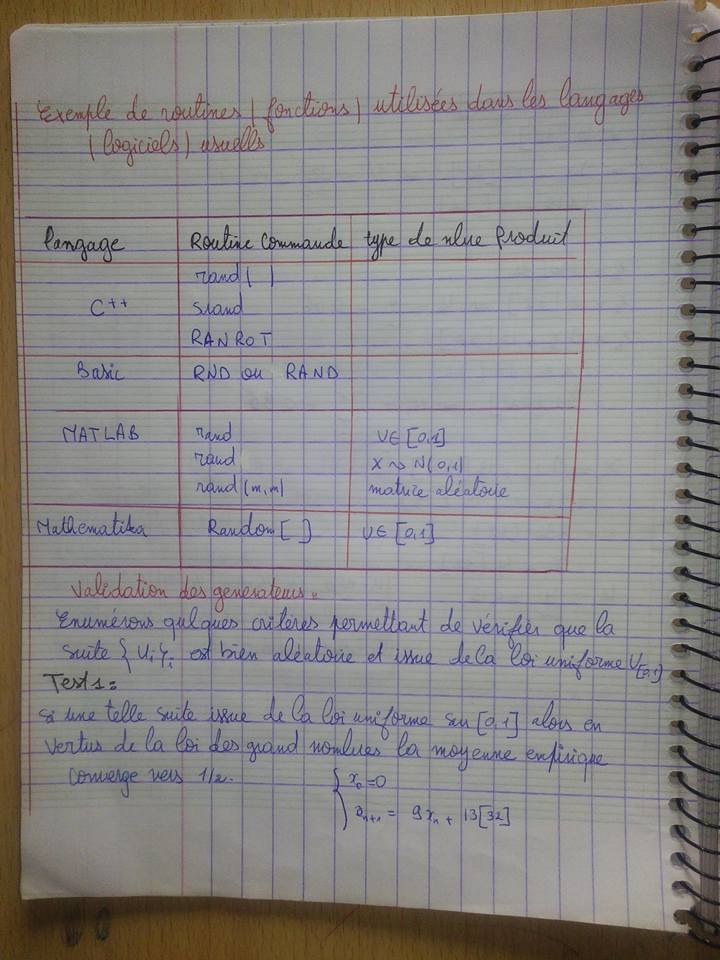 Exemple de routines ( fonctions ) utilisées dans les langages
( logiciels ) usuells
langage Routine Commande type de nbre Produit
rand ( )
C++ srand
RANROT
Basic RND ou RAND
MATLAB rand U∈ [0,1]
rand X ~ N(0,1)
rand (m,m) matrice aléatoire
Mathematika Random [ ] U∈ [0,1]
Validation des generateurs :
Enumérons qulques critères permettant de vérifier que la
suite { Ui }i est bien aléatoire et issue de la loi uniforme U[0,1]
Test 1 :
si une telle suite issue de la loi uniforme sur [0,1] alors en
vertus de la loi des grand nombres la moyenne empirique
converge vers 1/2. { x0 = 0
xn+1 = 9xn + 13[32]